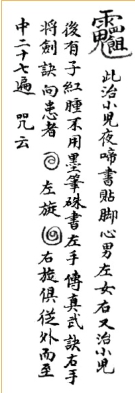 此治小兒夜啼書貼脚心男左女右又治小兒
後有子紅腫不用墨筆硃書左手傳真武訣右手
將劍訣向患者 左旋 右旋俱從外而至
中二十七遍 咒云